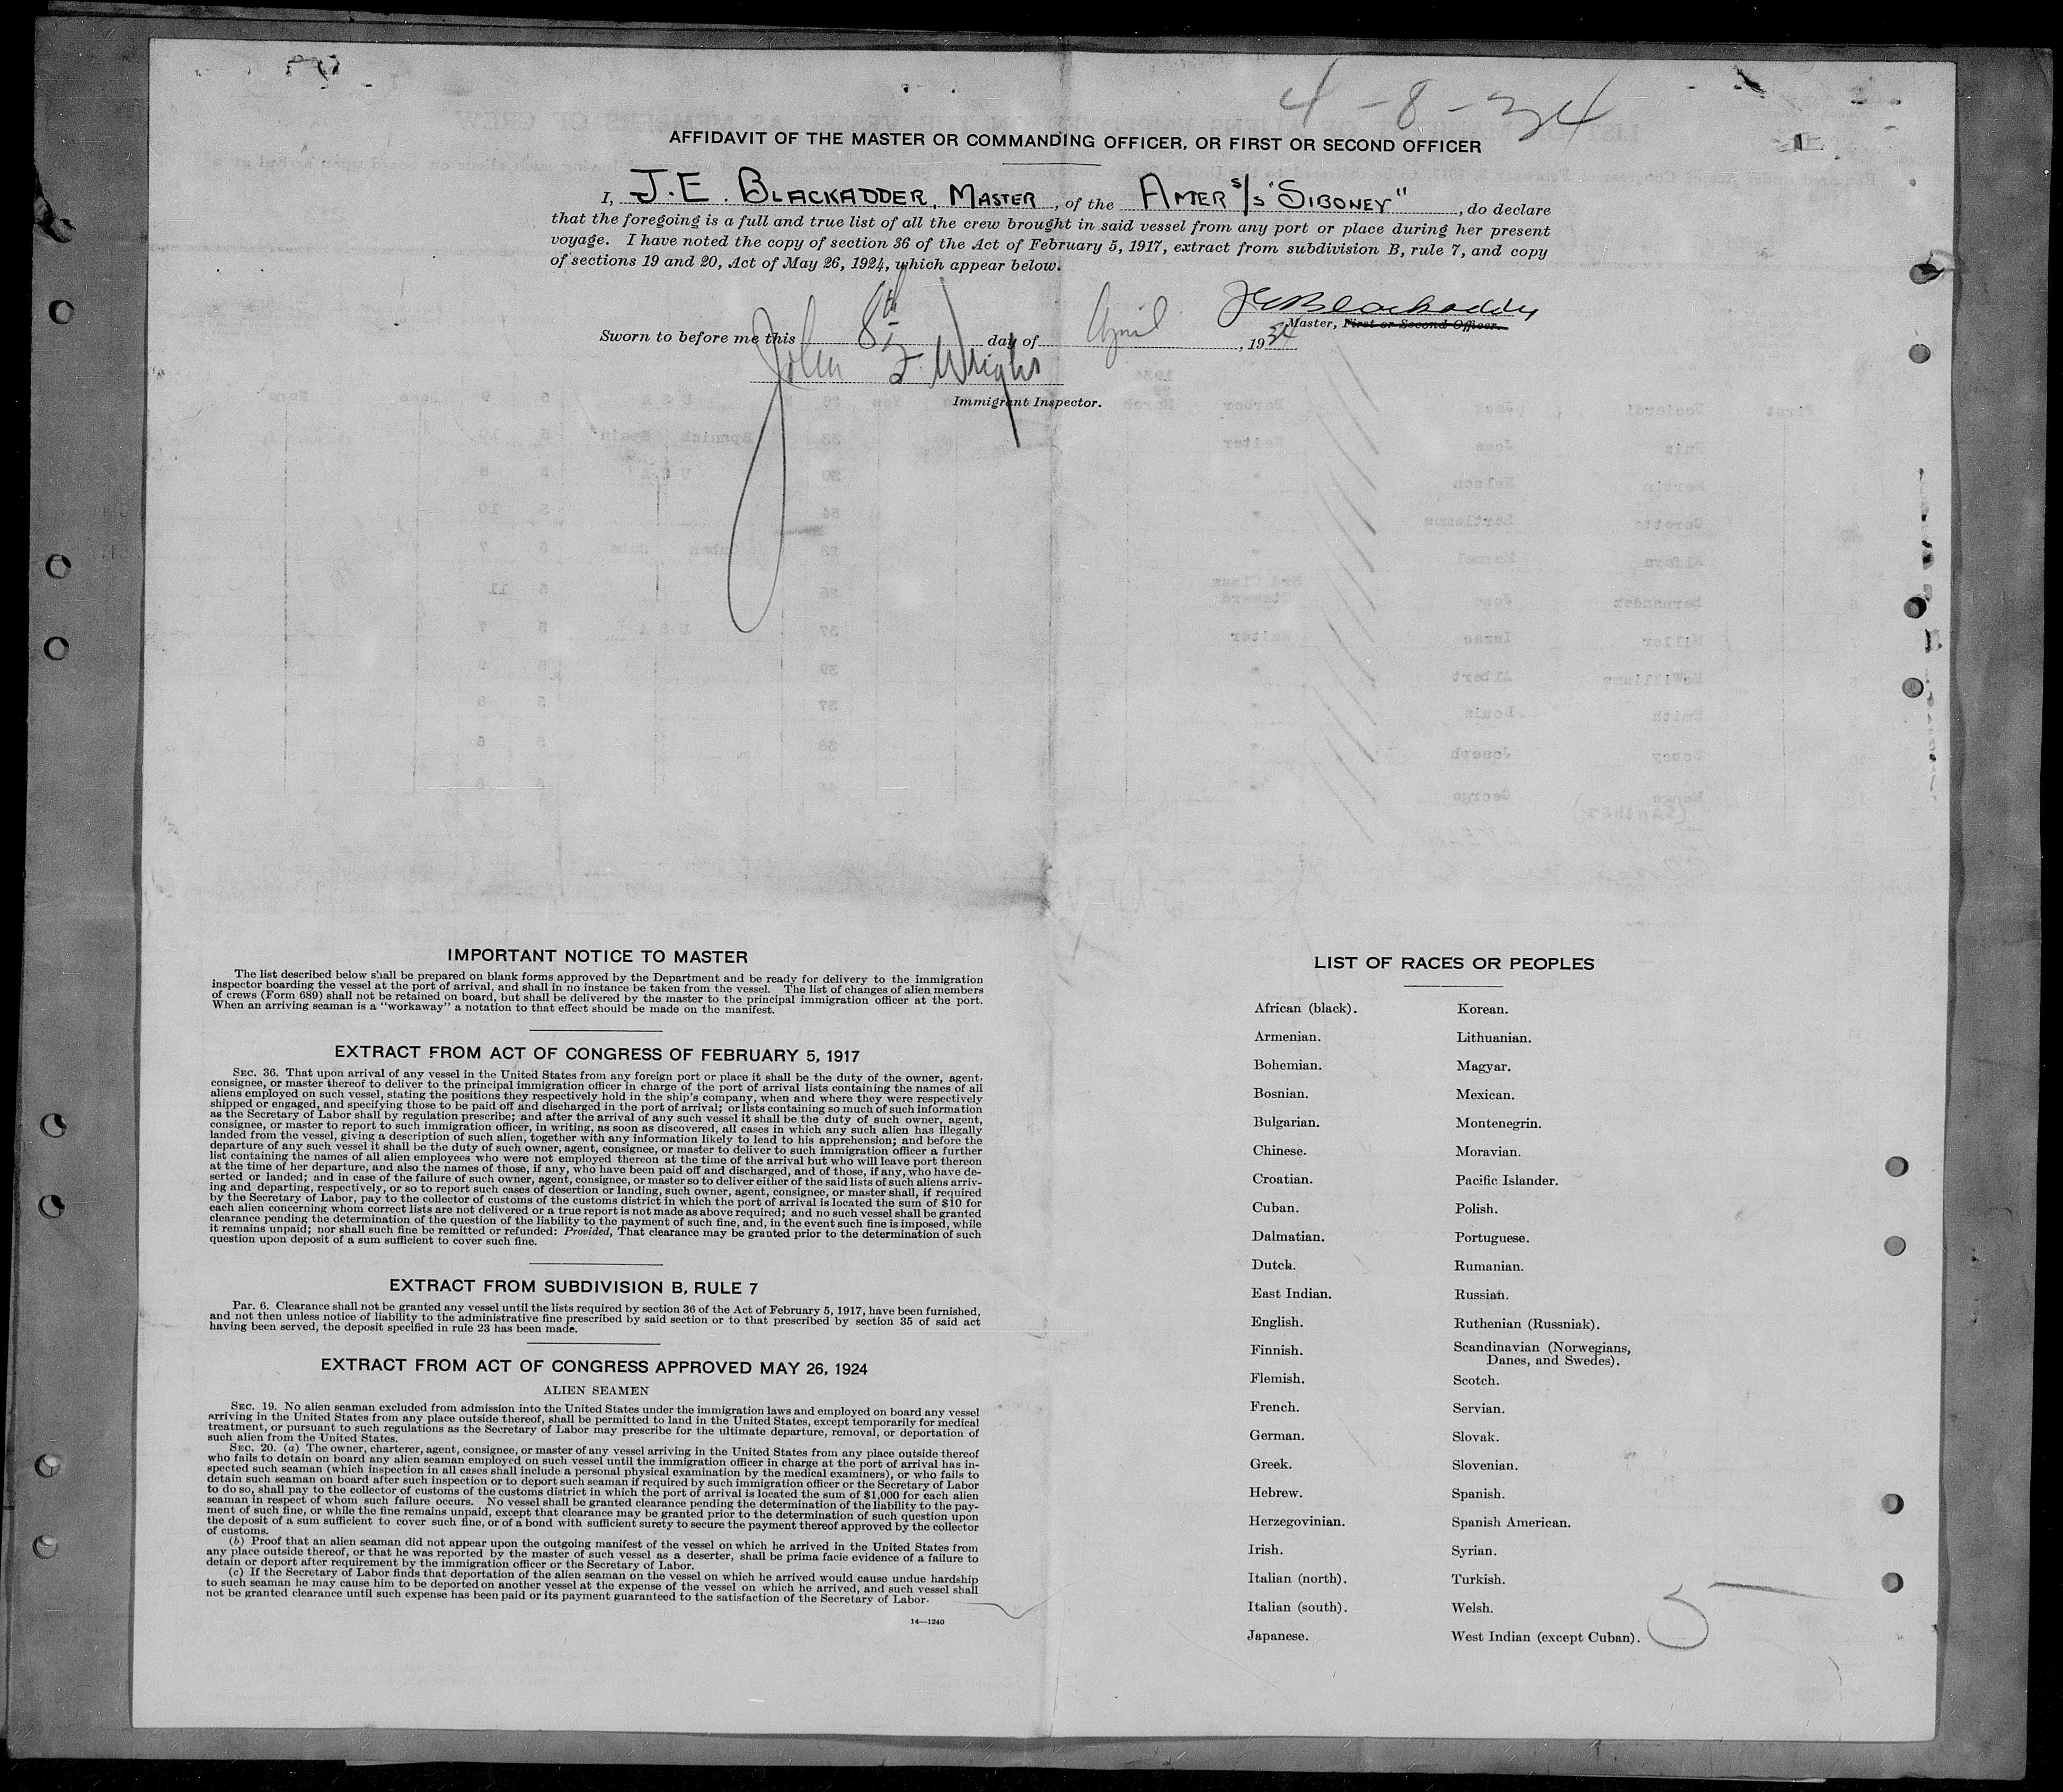 4-8-34
AFFIDAVIT OF THE MASTER OR COMMANDING OFFICER, OR FIRST OR SECOND OFFICER
I, J.E. BLACKADDER, MASTER, of the AMER S/S "SIBONEY", do declare
that the foregoing is a full and true list of all the crew brought in said vessel from any port or place during her present
voyage. I have noted the copy of section 36 of the Act of February 5, 1917, extract from subdivision B, rule 7, and copy
of sections 19 and 20, Act of May 26, 1924, which appear below.
JE Blackadder
Master, First or Second Officer.
Sworn to before me this 8th day of April, 1934
John F. Wright
Immigrant Inspector.
IMPORTANT NOTICE TO MASTER
The list described below shall be prepared on blank forms approved by the Department and be ready for delivery to the immigration
inspector boarding the vessel at the port of arrival, and shall in no instance be taken from the vessel. The list of changes of alien members
of crews (Form 689) shall not be retained on board, but shall be delivered by the master to the principal immigration officer at the port.
When an arriving seaman is a "workaway" a notation to that effect should be made on the manifest.
EXTRACT FROM ACT OF CONGRESS OF FEBRUARY 5, 1917
SEC. 36. That upon arrival of any vessel in the United States from any foreign port or place it shall be the duty of the owner, agent,
consignee, or master thereof to deliver to the principal immigration officer in charge of the port of arrival lists containing the names of all
aliens employed on such vessel, stating the positions they respectively hold in the ship's company, when and where they were respectively
shipped or engaged, and specifying those to be paid off and discharged in the port of arrival; or lists containing so much of such information
as the Secretary of Labor shall by regulation prescribe; and after the arrival of any such vessel it shall be the duty of such owner, agent,
consignee, or master to report to such immigration officer, in writing, as soon as discovered, all cases in which any such alien has illegally
landed from the vessel, giving a description of such alien, together with any information likely to lead to his apprehension; and before the
departure of any such vessel it shall be the duty of such owner, agent, consignee, or master to deliver to such immigration officer a further
list containing the names of all alien employees who were not employed thereon at the time of the arrival but who will leave port thereon
at the time of her departure, and also the names of those, if any, who have been paid off and discharged, and of those, if any, who have de-
serted or landed; and in case of the failure of such owner, agent, consignee, or master so to deliver either of the said lists of such aliens arriv-
ing and departing, respectively, or so to report such cases of desertion or landing, such owner, agent, consignee, or master shall, if required
by the Secretary of Labor, pay to the collector of customs of the customs district in which the port of arrival is located the sum of $10 for
each alien concerning whom correct lists are not delivered or a true report is not made as above required; and no such vessel shall be granted
clearance pending the determination of the question of the liability to the payment of such fine, and, in the event such fine is imposed, while
it remains unpaid; nor shall such fine be remitted or refunded: Provided, That clearance may be granted prior to the determination of such
question upon deposit of a sum sufficient to cover such fine.
EXTRACT FROM SUBDIVISION B, RULE 7
Par. 6. Clearance shall not be granted any vessel until the lists required by section 36 of the Act of February 5, 1917, have been furnished,
and not then unless notice of liability to the administrative fine prescribed by said section or to that prescribed by section 35 of said act
having been served, the deposit specified in rule 23 has been made.
EXTRACT FROM ACT OF CONGRESS APPROVED MAY 26, 1924
ALIEN SEAMEN
SEC. 19. No alien seaman excluded from admission into the United States under the immigration laws and employed on board any vessel
arriving in the United States from any place outside thereof, shall be permitted to land in the United States, except temporarily for medical
treatment, or pursuant to such regulations as the Secretary of Labor may prescribe for the ultimate departure, removal, or deportation of
such alien from the United States.
SEC. 20. (a) The owner, charterer, agent, consignee, or master of any vessel arriving in the United States from any place outside thereof
who fails to detain on board any alien seaman employed on such vessel until the immigration officer in charge at the port of arrival has in-
spected such seaman (which inspection in all cases shall include a personal physical examination by the medical examiners), or who fails to
detain such seaman on board after such inspection or to deport such seaman if required by such immigration officer or the Secretary of Labor
to do so, shall pay to the collector of customs of the customs district in which the port of arrival is located the sum of $1,000 for each alien
seaman in respect of whom such failure occurs. No vessel shall be granted clearance pending the determination of the liability to the pay-
ment of such fine, or while the fine remains unpaid, except that clearance may be granted prior to the determination of such question upon
the deposit of a sum sufficient to cover such fine, or of a bond with sufficient surety to secure the payment thereof approved by the collector
of customs.
(b) Proof that an alien seaman did not appear upon the outgoing manifest of the vessel on which he arrived in the United States from
any place outside thereof, or that he was reported by the master of such vessel as a deserter, shall be prima facie evidence of a failure to
detain or deport after requirement by the immigration officer or the Secretary of Labor.
(c) If the Secretary of Labor finds that deportation of the alien seaman on the vessel on which he arrived would cause undue hardship
to such seaman he may cause him to be deported on another vessel at the expense of the vessel on which he arrived, and such vessel shall
not be granted clearance until such expense has been paid or its payment guaranteed to the satisfaction of the Secretary of Labor.
14—1240
LIST OF RACES OR PEOPLES
African (black). Korean.
Armenian. Lithuanian.
Bohemian. Magyar.
Bosnian. Mexican.
Bulgarian. Montenegrin.
Chinese. Moravian.
Croatian. Pacific Islander.
Cuban. Polish.
Dalmatian. Portuguese.
Dutch. Rumanian.
East Indian. Russian.
English. Ruthenian (Russniak).
Finnish. Scandinavian (Norwegians,
Danes, and Swedes).
Flemish. Scotch.
French. Servian.
German. Slovak.
Greek. Slovenian.
Hebrew. Spanish.
Herzegovinian. Spanish American.
Irish. Syrian.
Italian (north). Turkish.
Italian (south). Welsh.
Japanese. West Indian (except Cuban).
5